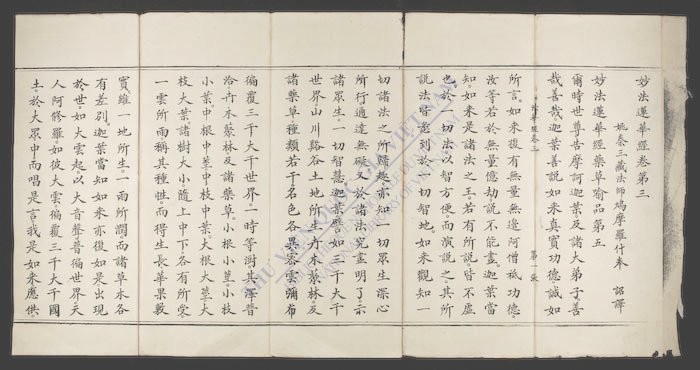 妙法蓮華經卷第三
姚秦三藏法師鳩摩羅什奉 詔譯
妙法蓮華經藥草喻品第五
爾時世尊告摩訶迦葉及諸大弟子善
哉善哉迦葉善說如來真實功德誠如
所言。如來復有無量無邊阿僧祇功德。
經卷三 第一張
汝等若於無量億劫說不能盡迦葉當
知如來是諸法之王。若有所說。皆不虛
也於一切法以智方便而演說之。其所
說法皆悉到於一切智地如來觀知一
切諸法之所歸趣亦知一切眾生深心
所行通達無礙又於諸法究盡明了。示
諸眾生一切智慧迦葉譬如三千大千
世界山川谿谷土地所生卉木叢林。及
諸藥草種類若干名色各異密雲彌布
徧覆三千大千世界一時等澍其澤普
洽卉木叢林及諸藥草小根小莖小枝
小葉。中根中莖中枝中葉大根大莖大
枝大葉諸樹大小隨上中下各有所受
一雲所雨稱其種性。而得生長華果敷
實雖一地所生。一雨所潤而諸草木各
有差別。迦葉當知如來亦復如是出現
於世。如大雲起。以大音聲普徧世界天
人阿修羅如彼大雲徧覆三千大千國
土。於大眾中而唱是言我是如來應供。
THƯ VIỆN QUỐC GIA VIỆT NAM